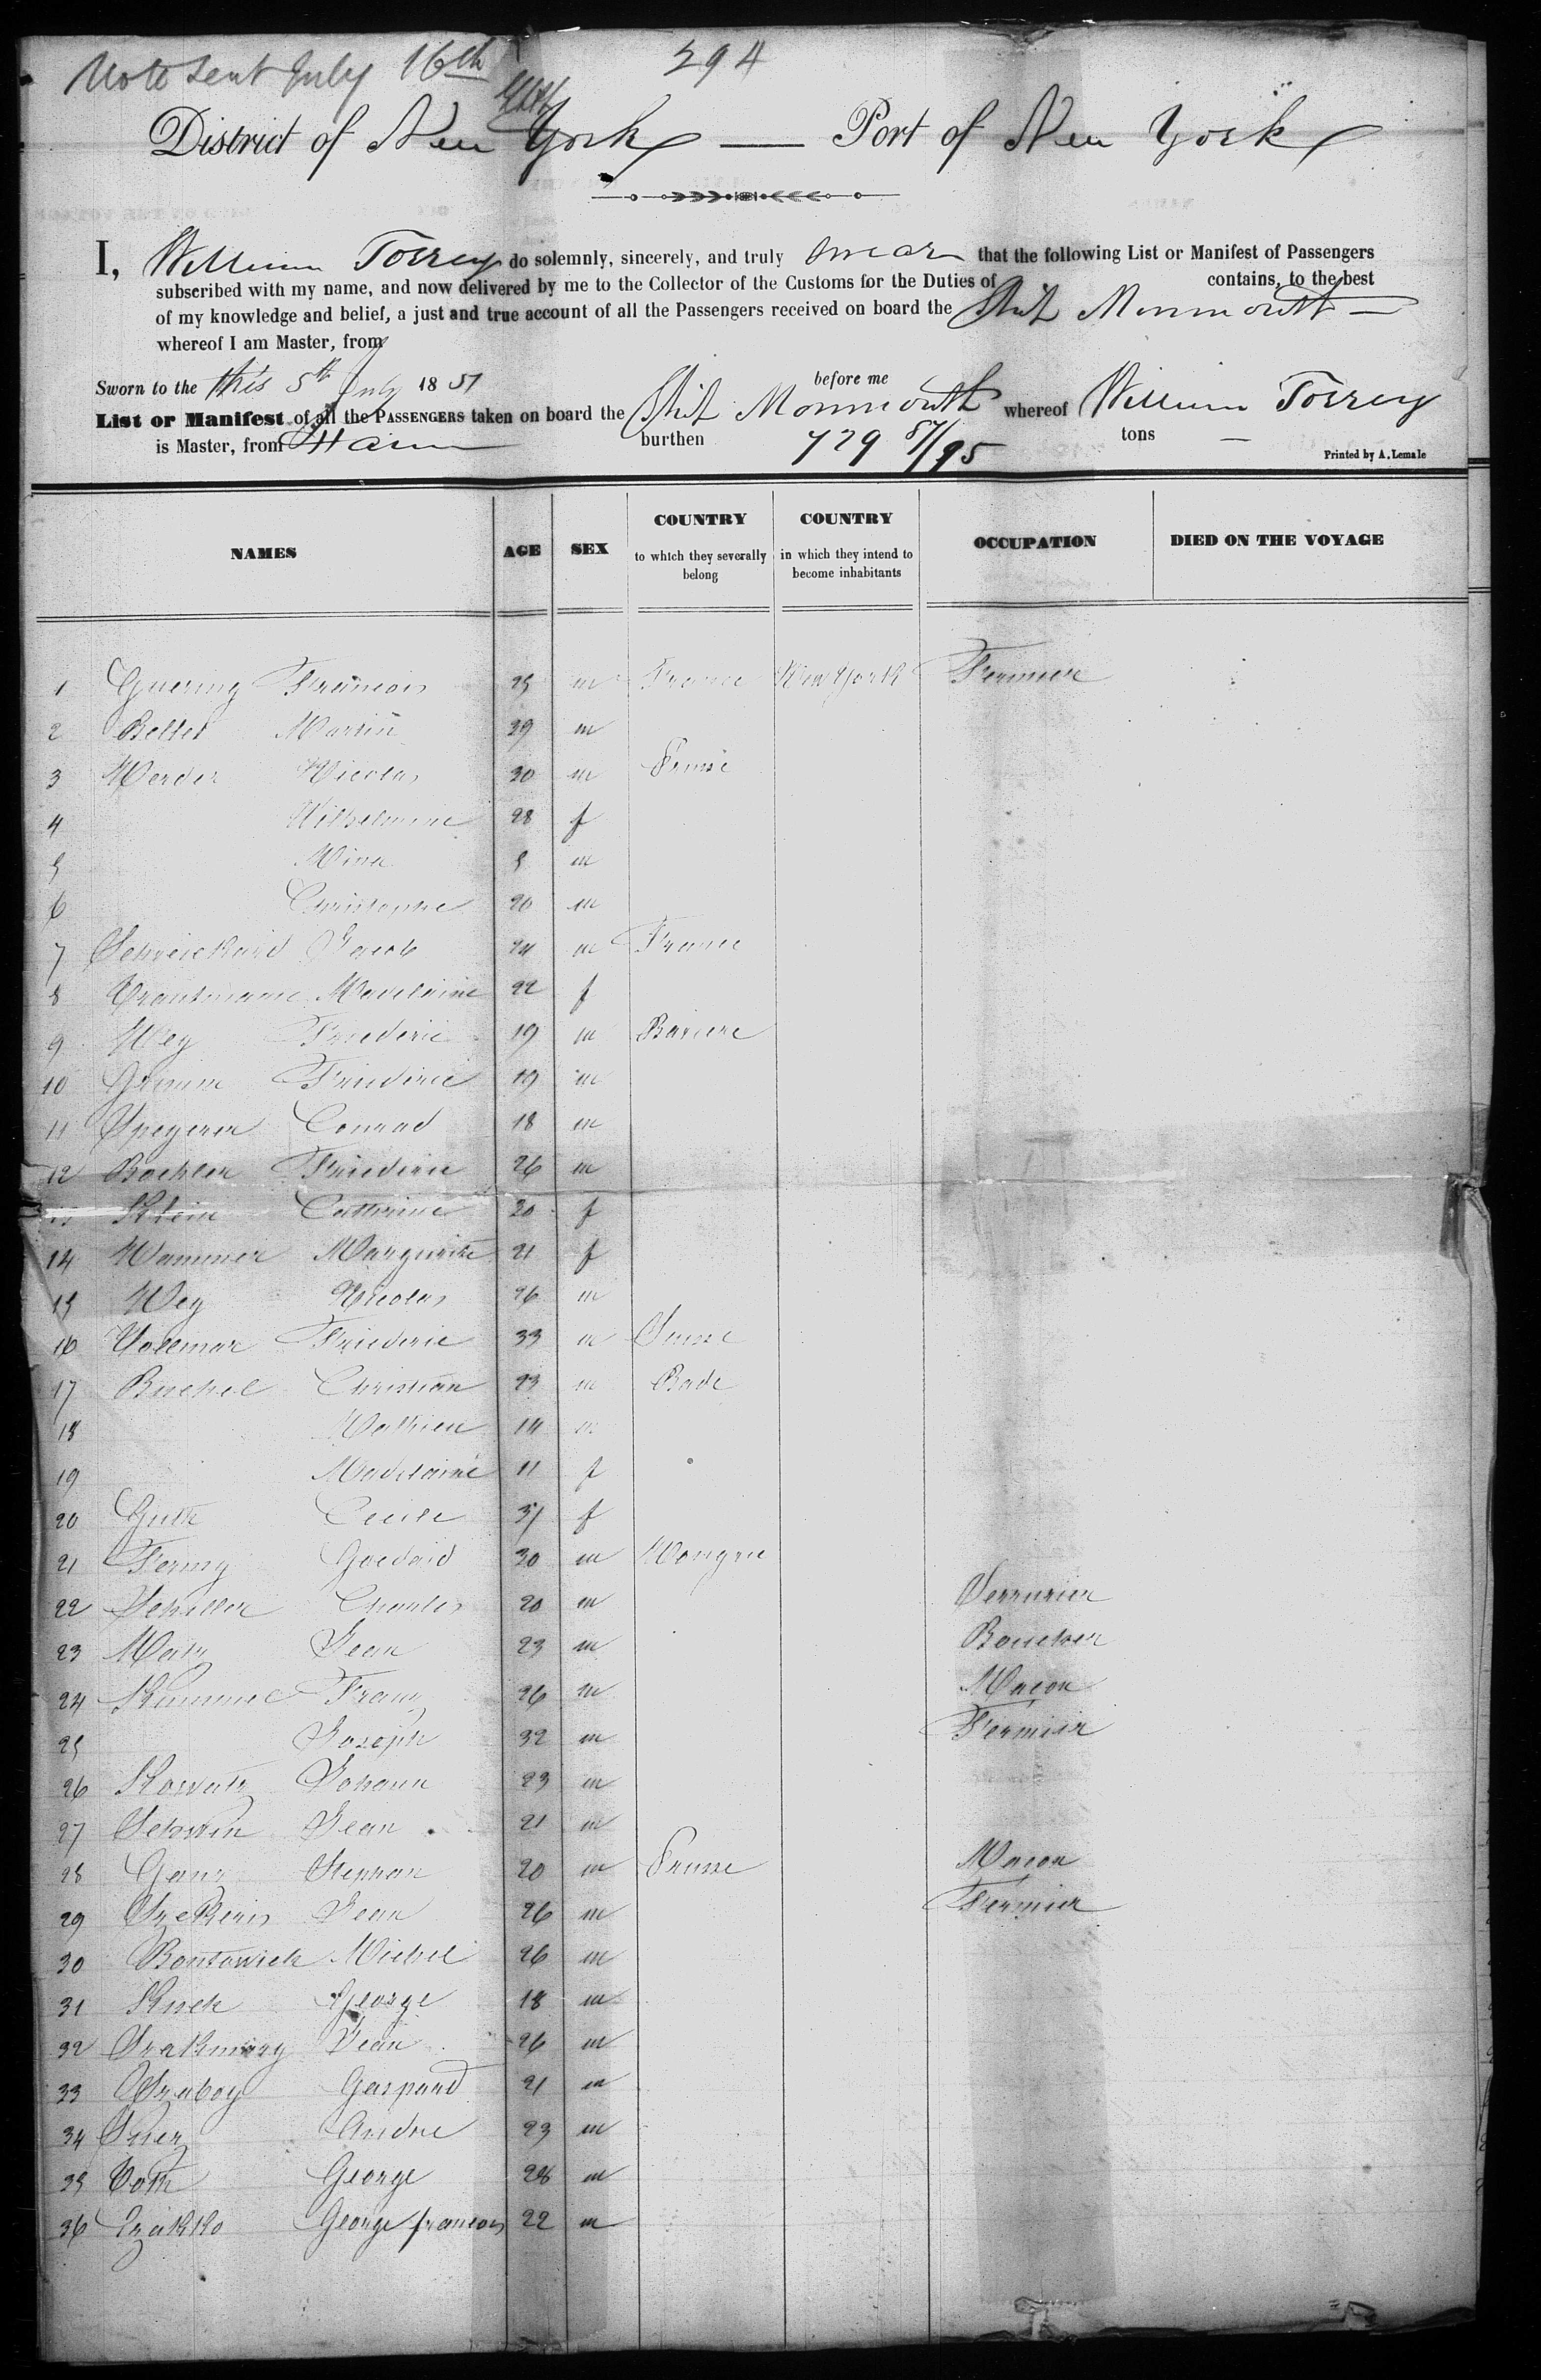 Note Sent July 16th 294
District of New York — Port of New York
I, William Torrey do solemnly, sincerely, and truly swear that the following List or Manifest of Passengers
subscribed with my name, and now delivered by me to the Collector of the Customs for the Duties of contains, to the best
of my knowledge and belief, a just and true account of all the Passengers received on board the Ship Monmouth —
whereof I am Master, from
Sworn to the this 5th July 1851 before me
List or Manifest of all the PASSENGERS taken on board the Ship Monmouth whereof William Torrey
is Master, from Havre burthen 729 87/95 tons —
Printed by A. Lemale
NAMES AGE SEX COUNTRY to which they severally belong COUNTRY in which they intend to become inhabitants OCCUPATION DIED ON THE VOYAGE
1 Guering Francois 25 m France New York Fermier
2 Belles Martin 29 m
3 Werder Nicolas 30 m Prusse
4 Wilhelmine 28 f
5 Mina 5 m
6 Christophe 20 m
7 Jacob 24 m France
8 Trautmann Madelaine 22 f
9 Wey Friederic 19 m Baviere
10 Gramm Friederic 19 m
11 Speyerer Conrad 18 m
12 Boehler Friederic 26 m
13 Klein Catherine 20 f
14 Wammer Marguerite 21 f
15 Wey Nicolas 26 m
16 Vollmar Friederic 33 m Suisse
17 Buchel Christian 23 m Bade
18 Mathieu 14 m
19 Madelaine 11 f
20 Guth Cecile 37 f
21 Ferny 30 m Hongrie
22 Schiller Charles 20 m Serrurier
23 Jean 23 m Boucher
24 Kummel Franz 26 m Macon
25 Joseph 32 m Fermier
26 Kowatz Johann 23 m
27 Schwin Jean 21 m
28 Ganz Stephan 20 m Prusse Macon
29 Szekeris Jean 26 m Fermier
30 Bontowich Michel 26 m
31 Kuch George 18 m
32 Szathmary Jean 26 m
33 Szaboy Gaspard 21 m
34 Andre 23 m
35 Toth George 28 m
36 Georges francois 22 m